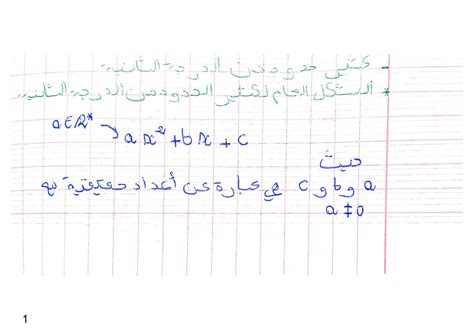 - كثير حدود من الدرجة الثانية
* الشكل العام لكثير الحدود من الدرجة الثانية
a∈ℝ* → ax²+bx+c
حيث
a و b و c هي عبارة عن أعداد حقيقية مع
a≠0
1